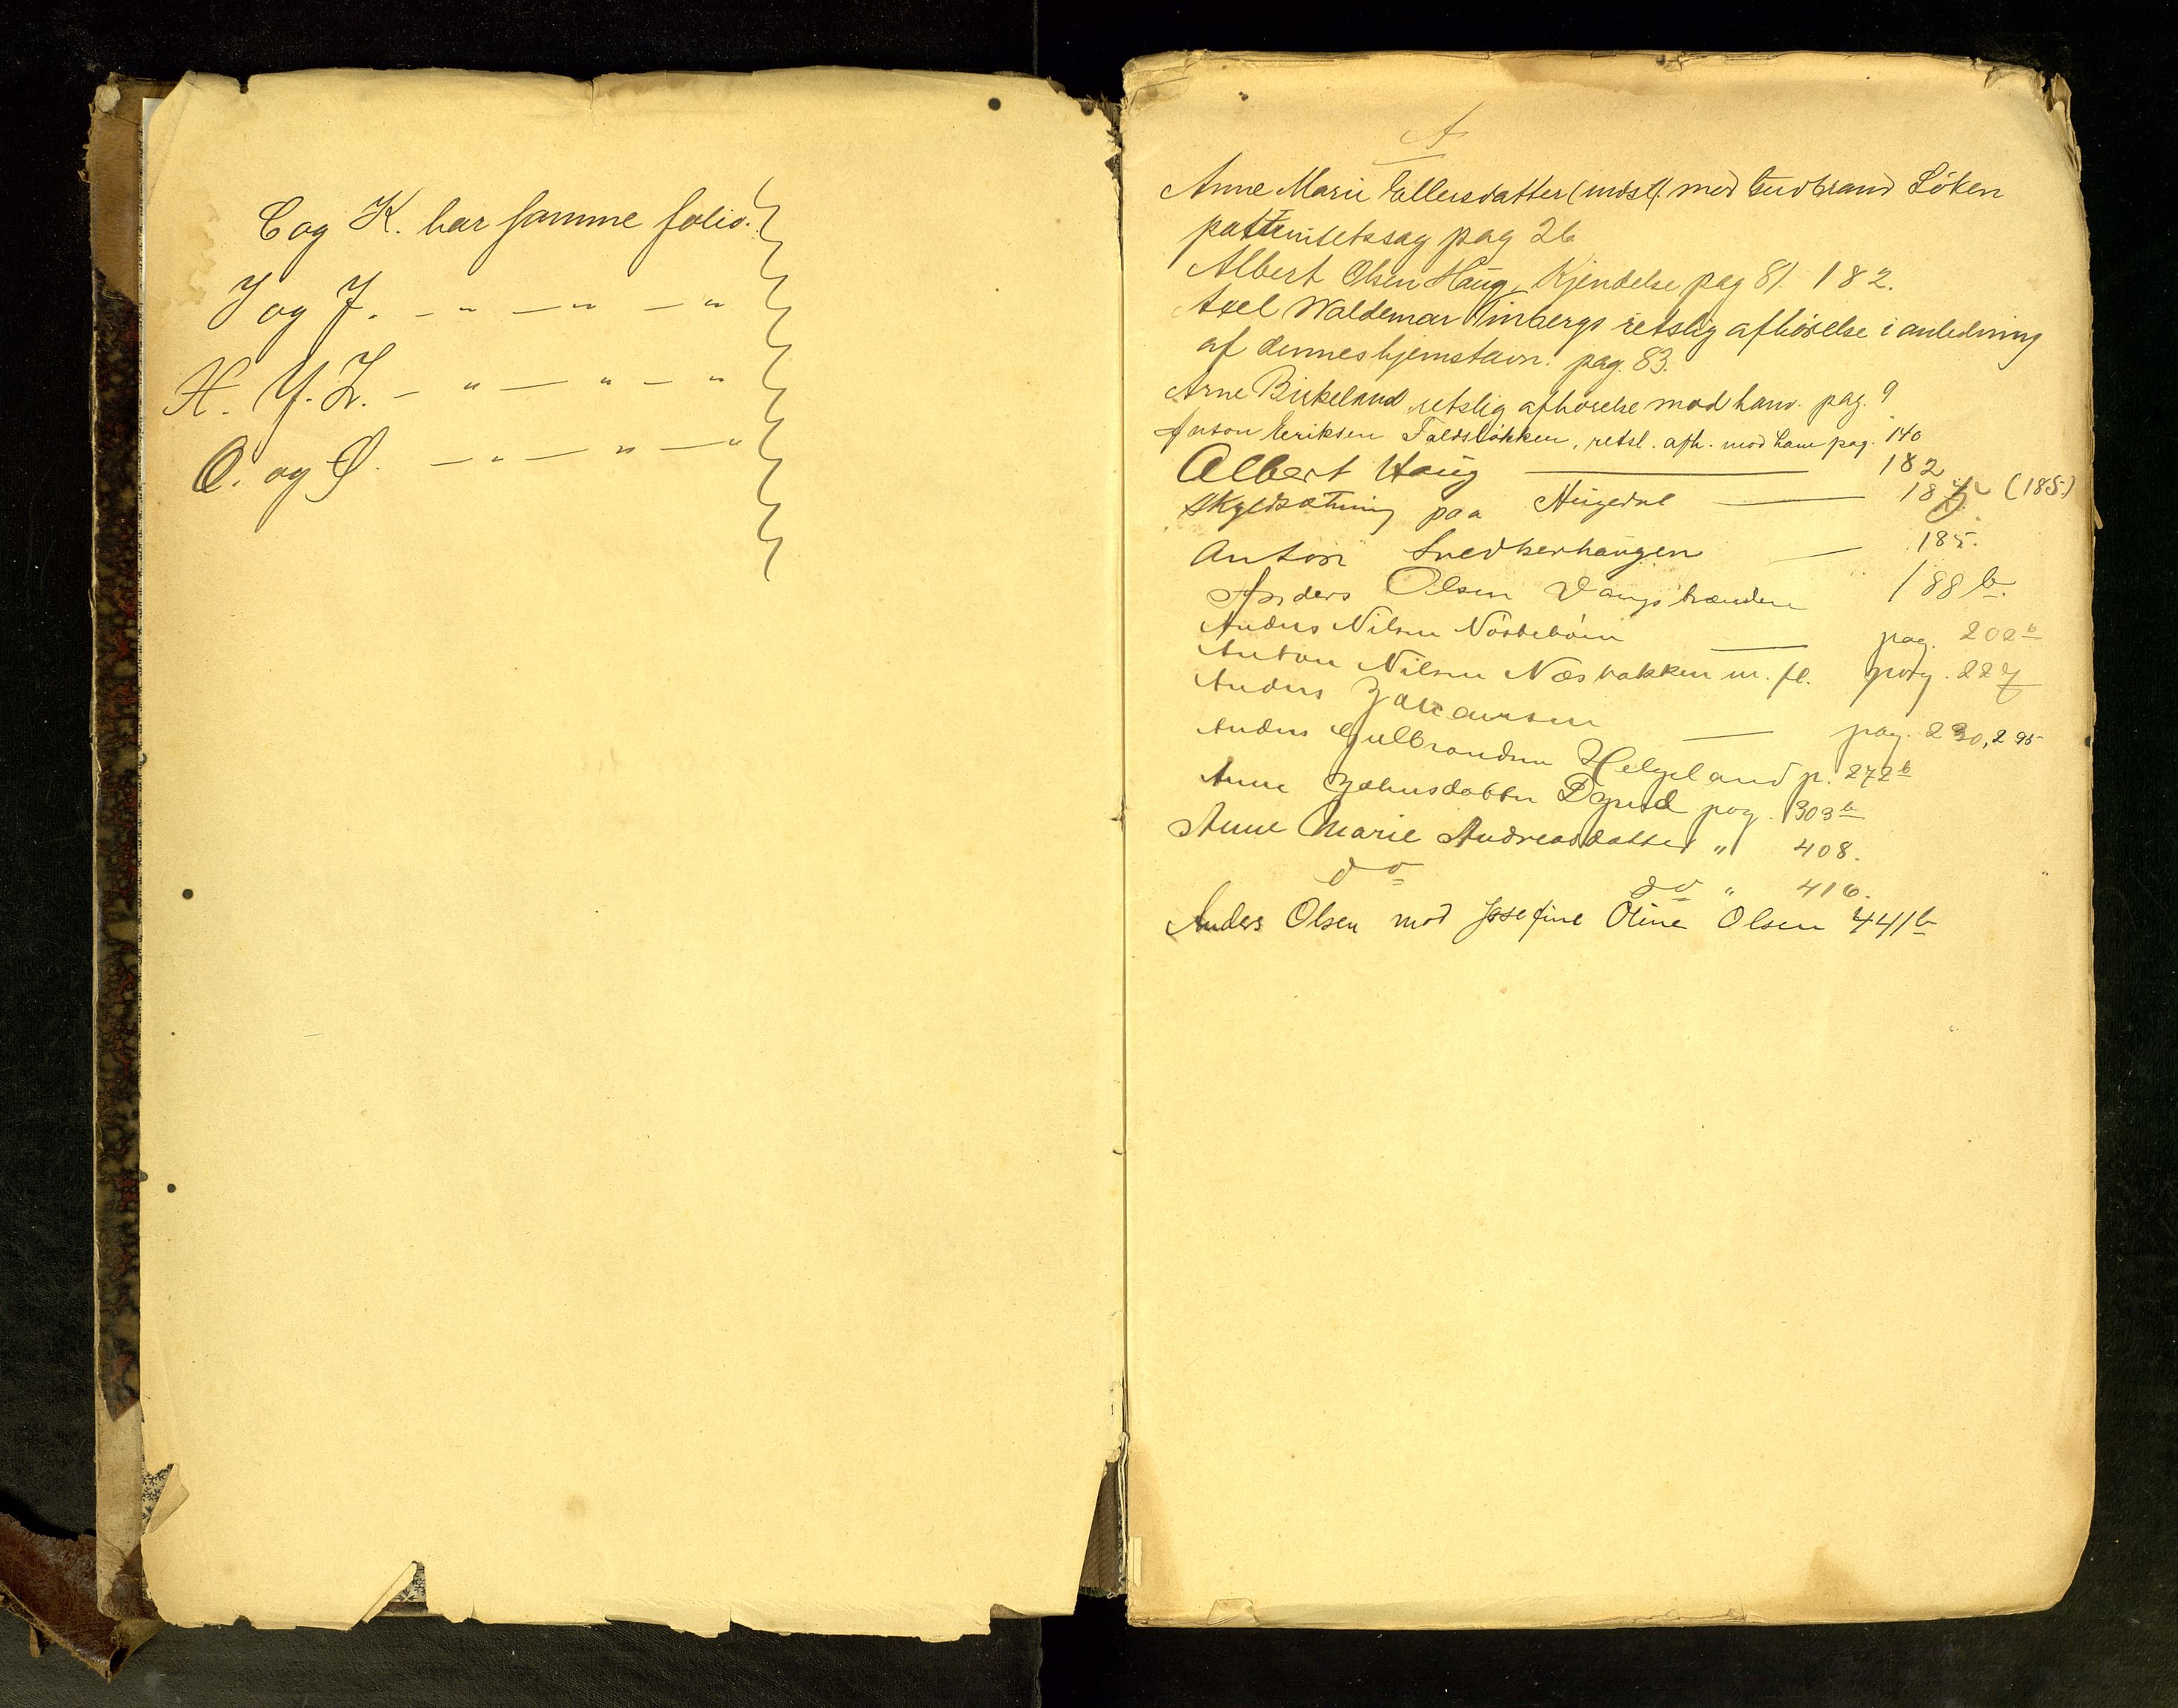 C og K. har samme folio.
I og J. — " — " — "
X. Y. Z. — " — " — "
O. og Ø. — " — " — "
A
Anne Marie Ellersdatter (indst). mod Gudbrand Löken
patternitetssag pag 26
Albert Olsen Haug, Kjendelse pag 81. 182.
Axel Waldemar Vinbergs retslig afhörelse i anledning
af dennes hjemstavn. pag. 83.
Arne Birkeland retslig afhörelse mod ham. pag. 9
Anton Eriksen Faldslökken, retsl. afh. mod ham pag. 140
Albert Haug — 182
Skyldsætning paa — (185.)
Anton Snedkerhaugen — 185.
Anders Olsen 188 b.
Anders Nilsen — pag. 202 b
Anton Nilsen Næsbakken m. fl. pag. 227
Anders — pag. 230, 295
Anders Gulbrandsen Helgeland p. 272 b
Anne Johnsdatter pag. 303 b
Anne Marie Andreasdatter " 408.
do do " 416.
Anders Olsen mod Josefine Oline Olsen 441 b